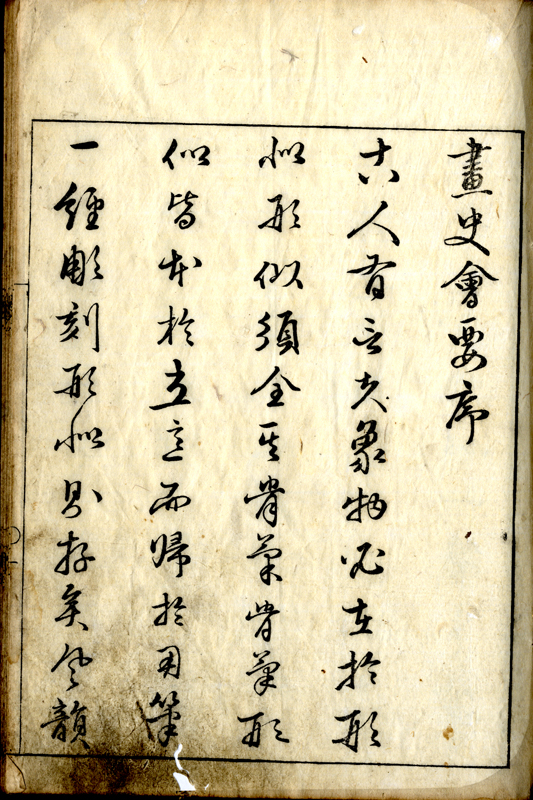 畫史會要序
古人有言夫象物必在於形
似形似須全其骨氣骨氣形
似皆本於立意而歸於用筆
一經彫刻形似則存矣風韻